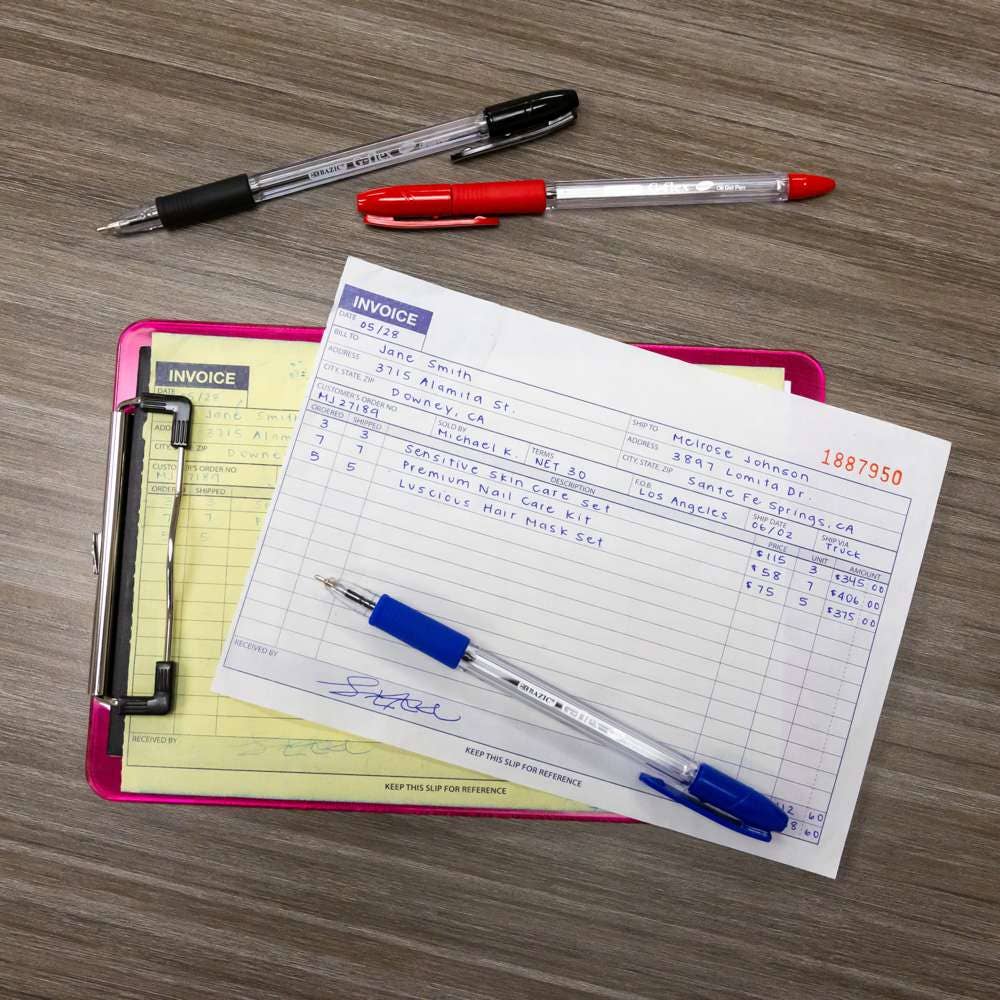 BAZIC
Oil Gel Pen
INVOICE
DATE 05/28
BILL TO Jane Smith
ADDRESS 3715 Alamita St.
CITY, STATE, ZIP Downey, CA
SHIP TO Melrose Johnson
ADDRESS 3897 Lomita Dr.
CITY, STATE, ZIP Sante Fe Springs, CA
1887950
CUSTOMER'S ORDER NO MJ27189
SOLD BY Michael K.
TERMS NET 30
F.O.B. Los Angeles
SHIP DATE 06/02
SHIP VIA Truck
ORDERED SHIPPED DESCRIPTION PRICE UNIT AMOUNT
3 3 Sensitive Skin Care Set $115 3 $345 00
7 7 Premium Nail Care Kit $58 7 $406 00
5 5 Luscious Hair Mask Set $75 5 $375 00
12 60
8 60
RECEIVED BY
KEEP THIS SLIP FOR REFERENCE
BAZIC
INVOICE
DATE /28
Jane Smith
3715 Alam
CITY, Downe
CUSTOMER'S ORDER NO
MJ27189
ORDERED SHIPPED
7
5 5
RECEIVED BY
KEEP THIS SLIP FOR REFERENCE